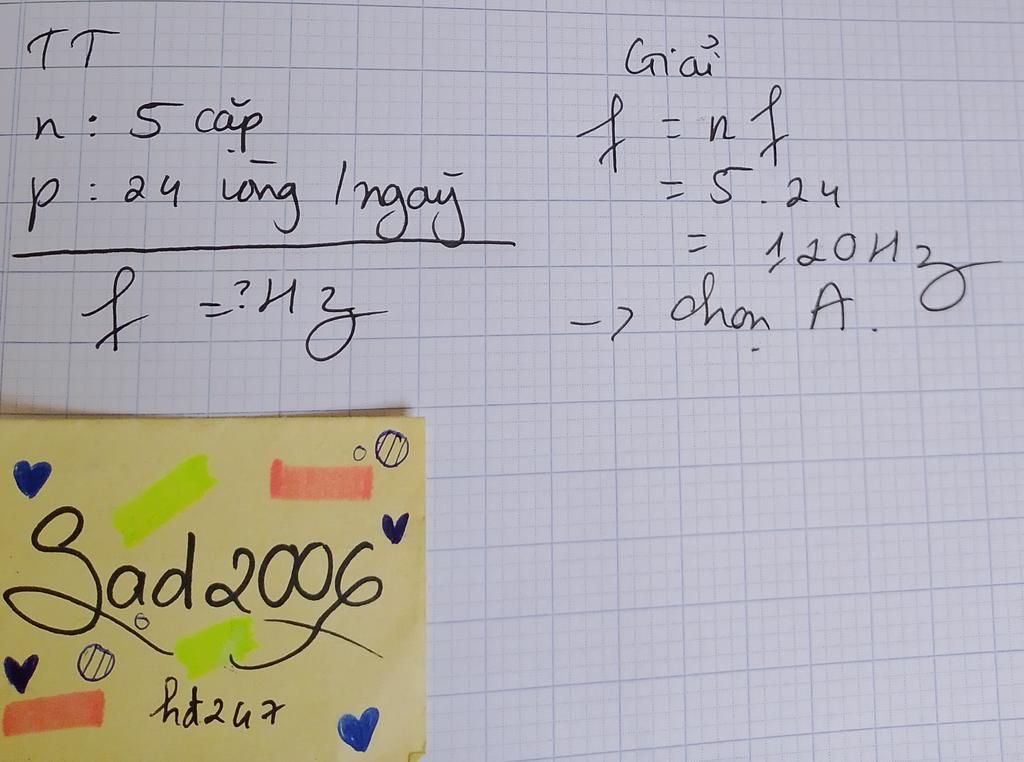 TT
n : 5 cặp
p : 24 vòng / ngaỹ
f = ? Hz
Giải
f = n f
= 5 . 24
= 120Hz
-> chọn A.
Sad2006
hd247